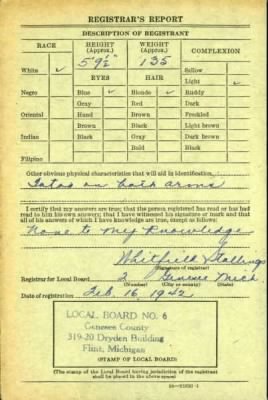 REGISTRAR'S REPORT
DESCRIPTION OF REGISTRANT
RACE HEIGHT (Approx.) WEIGHT (Approx.) COMPLEXION
5'9½" 135
White ✓ Sallow
EYES HAIR Light ✓
Negro Blue ✓ Blonde ✓ Ruddy
Gray Red Dark
Oriental Hazel Brown Freckled
Brown Black Light brown
Indian Black Gray Dark brown
Bald Black
Filipino
Other obvious physical characteristics that will aid in identification
Tatoo on both arms
I certify that my answers are true; that the person registered has read or has had
read to him his own answers; that I have witnessed his signature or mark and that
all of his answers of which I have knowledge are true, except as follows:
None to My Knowledge
Whitfield Stallings
(Signature of registrar)
Registrar for Local Board 2 Genesee Mich.
(Number) (City or county) (State)
Date of registration Feb. 16 1942
LOCAL BOARD NO. 6
Genesee County
319-20 Dryden Building
Flint, Michigan
(STAMP OF LOCAL BOARD)
(The stamp of the Local Board having jurisdiction of the registrant
shall be placed in the above space.)